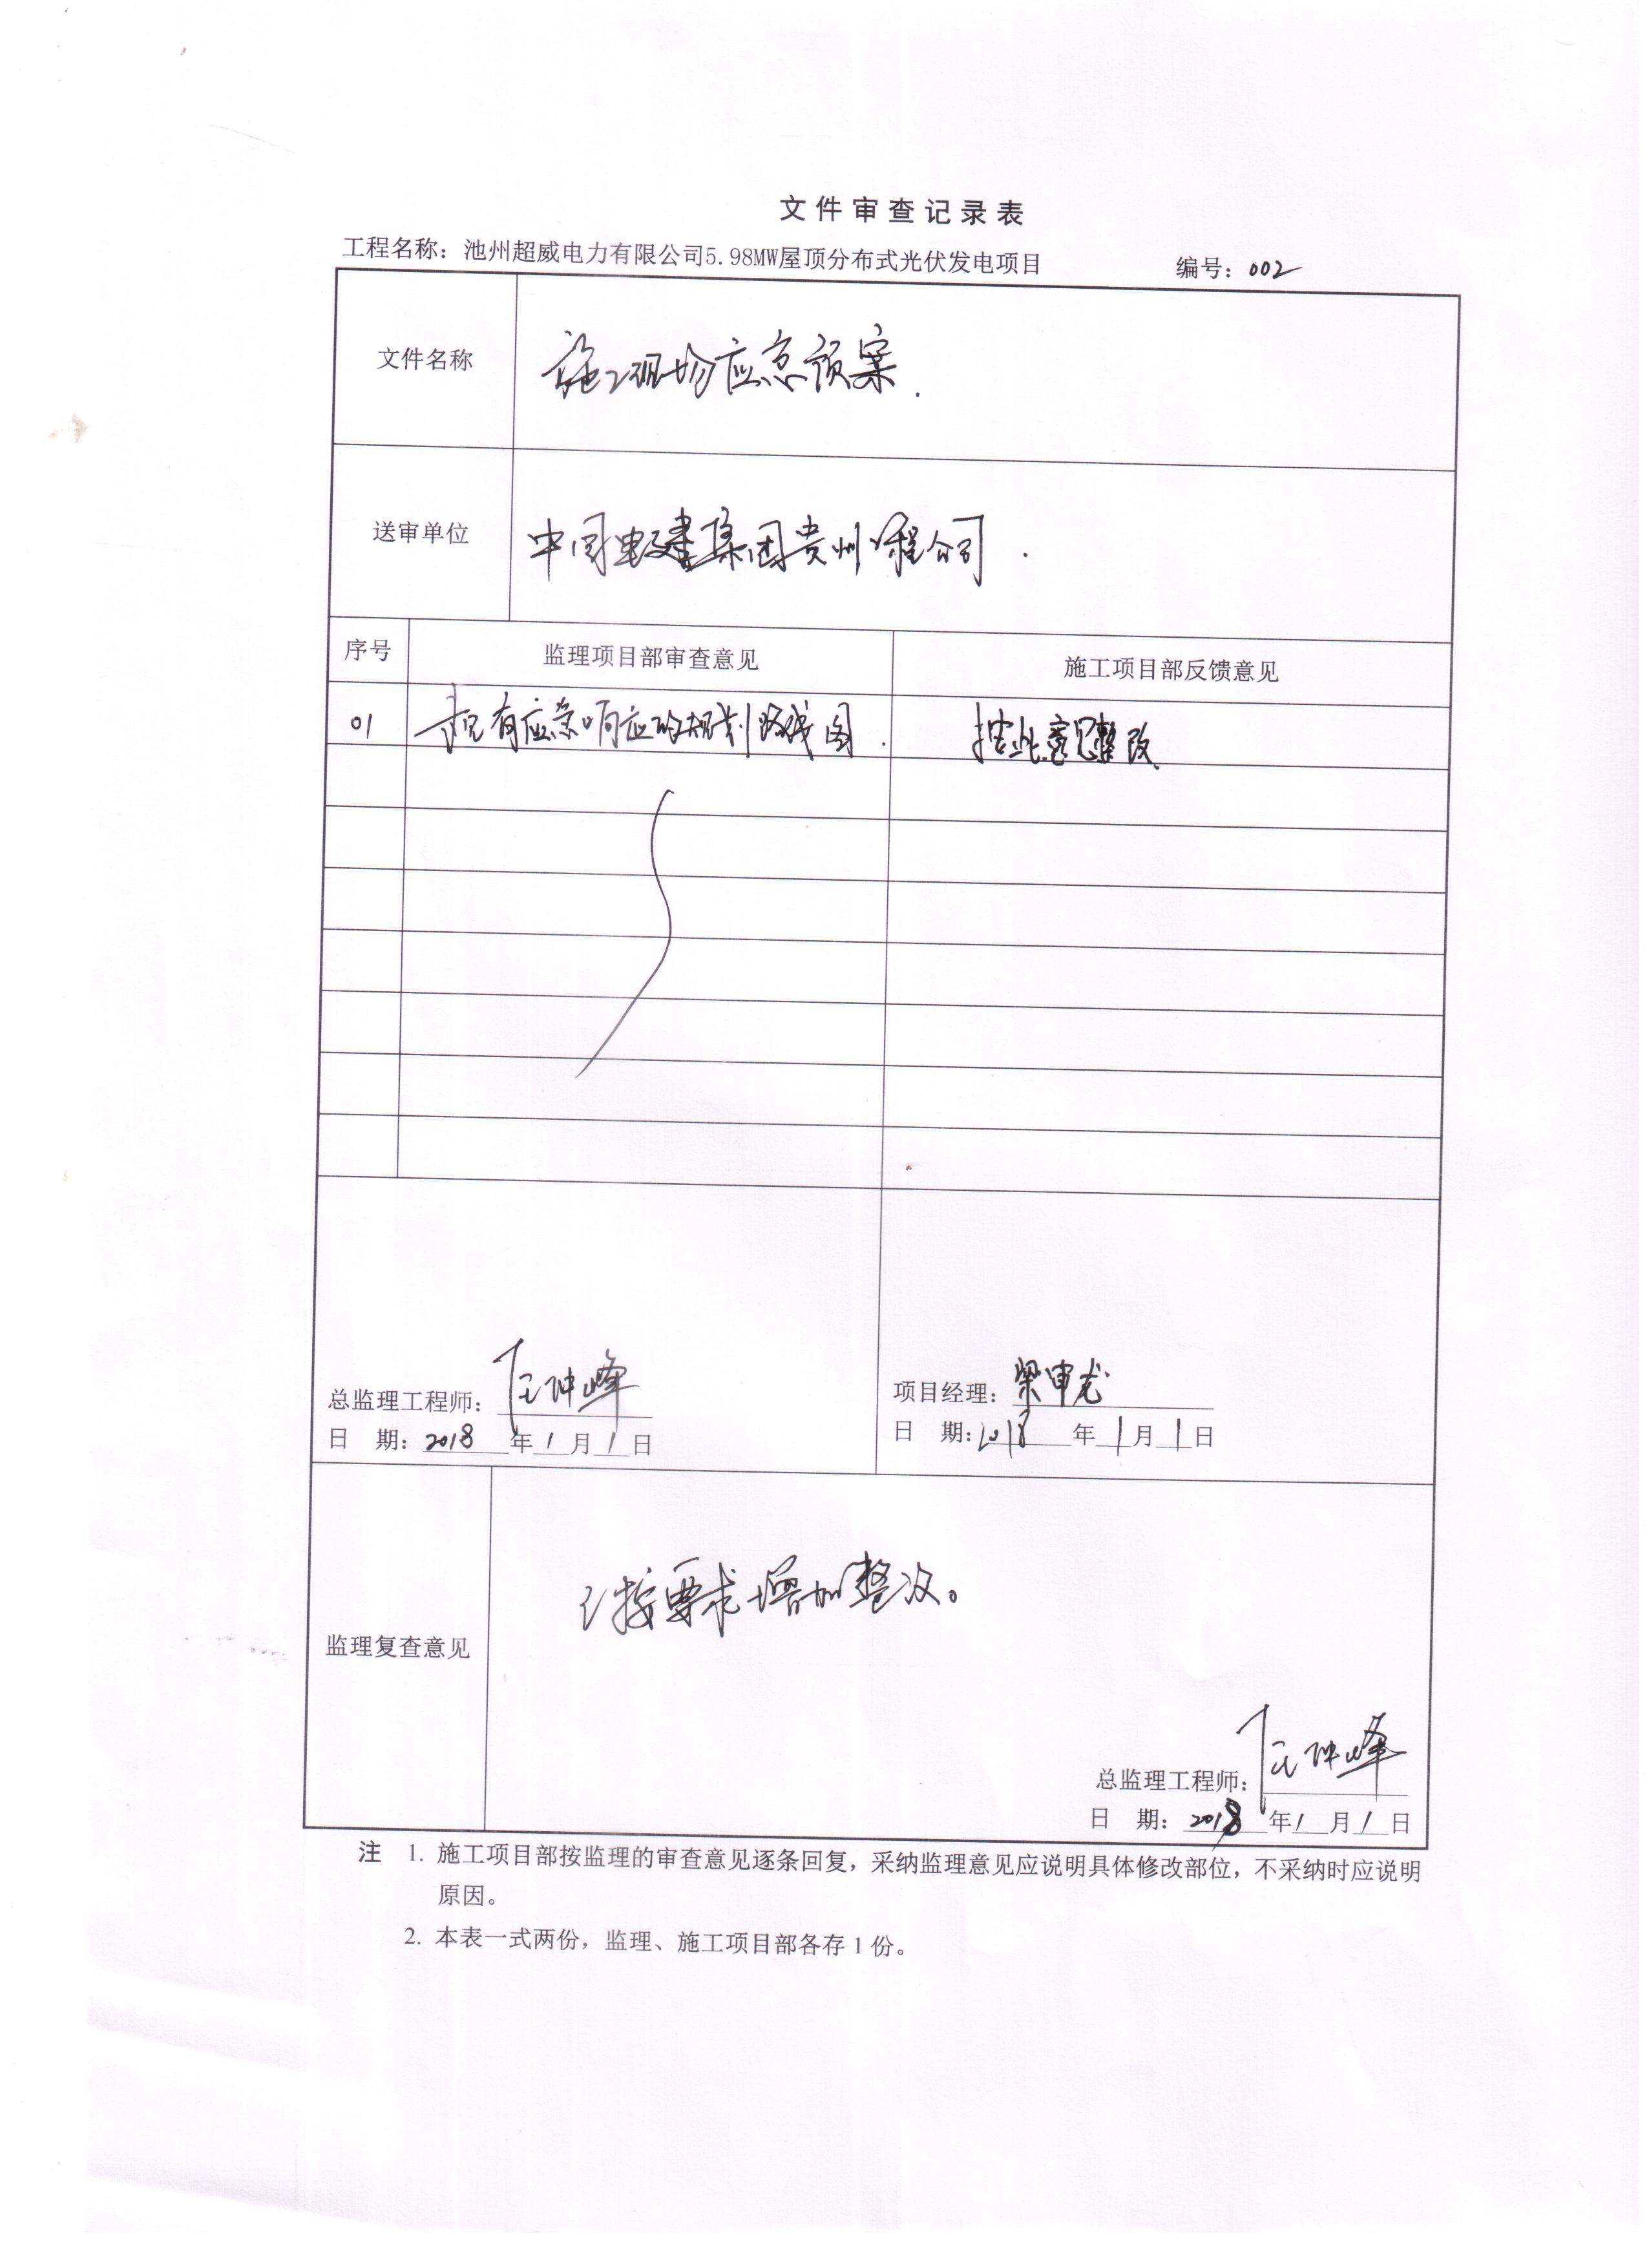 文件审查记录表
工程名称：池州超威电力有限公司5.98MW屋顶分布式光伏发电项目 编号：002
文件名称 施工现场应急预案.
送审单位 中国电建集团贵州工程公司.
序号 监理项目部审查意见 施工项目部反馈意见
01 有应急响应的规划路线图. 按此意见整改
总监理工程师： 项目经理：梁申龙
日 期：2018年1月1日 日 期：2018年1月1日
监理复查意见 已按要求增加整改。
总监理工程师：
日 期：2018年1月1日
注 1. 施工项目部按监理的审查意见逐条回复，采纳监理意见应说明具体修改部位，不采纳时应说明
原因。
2. 本表一式两份，监理、施工项目部各存1份。